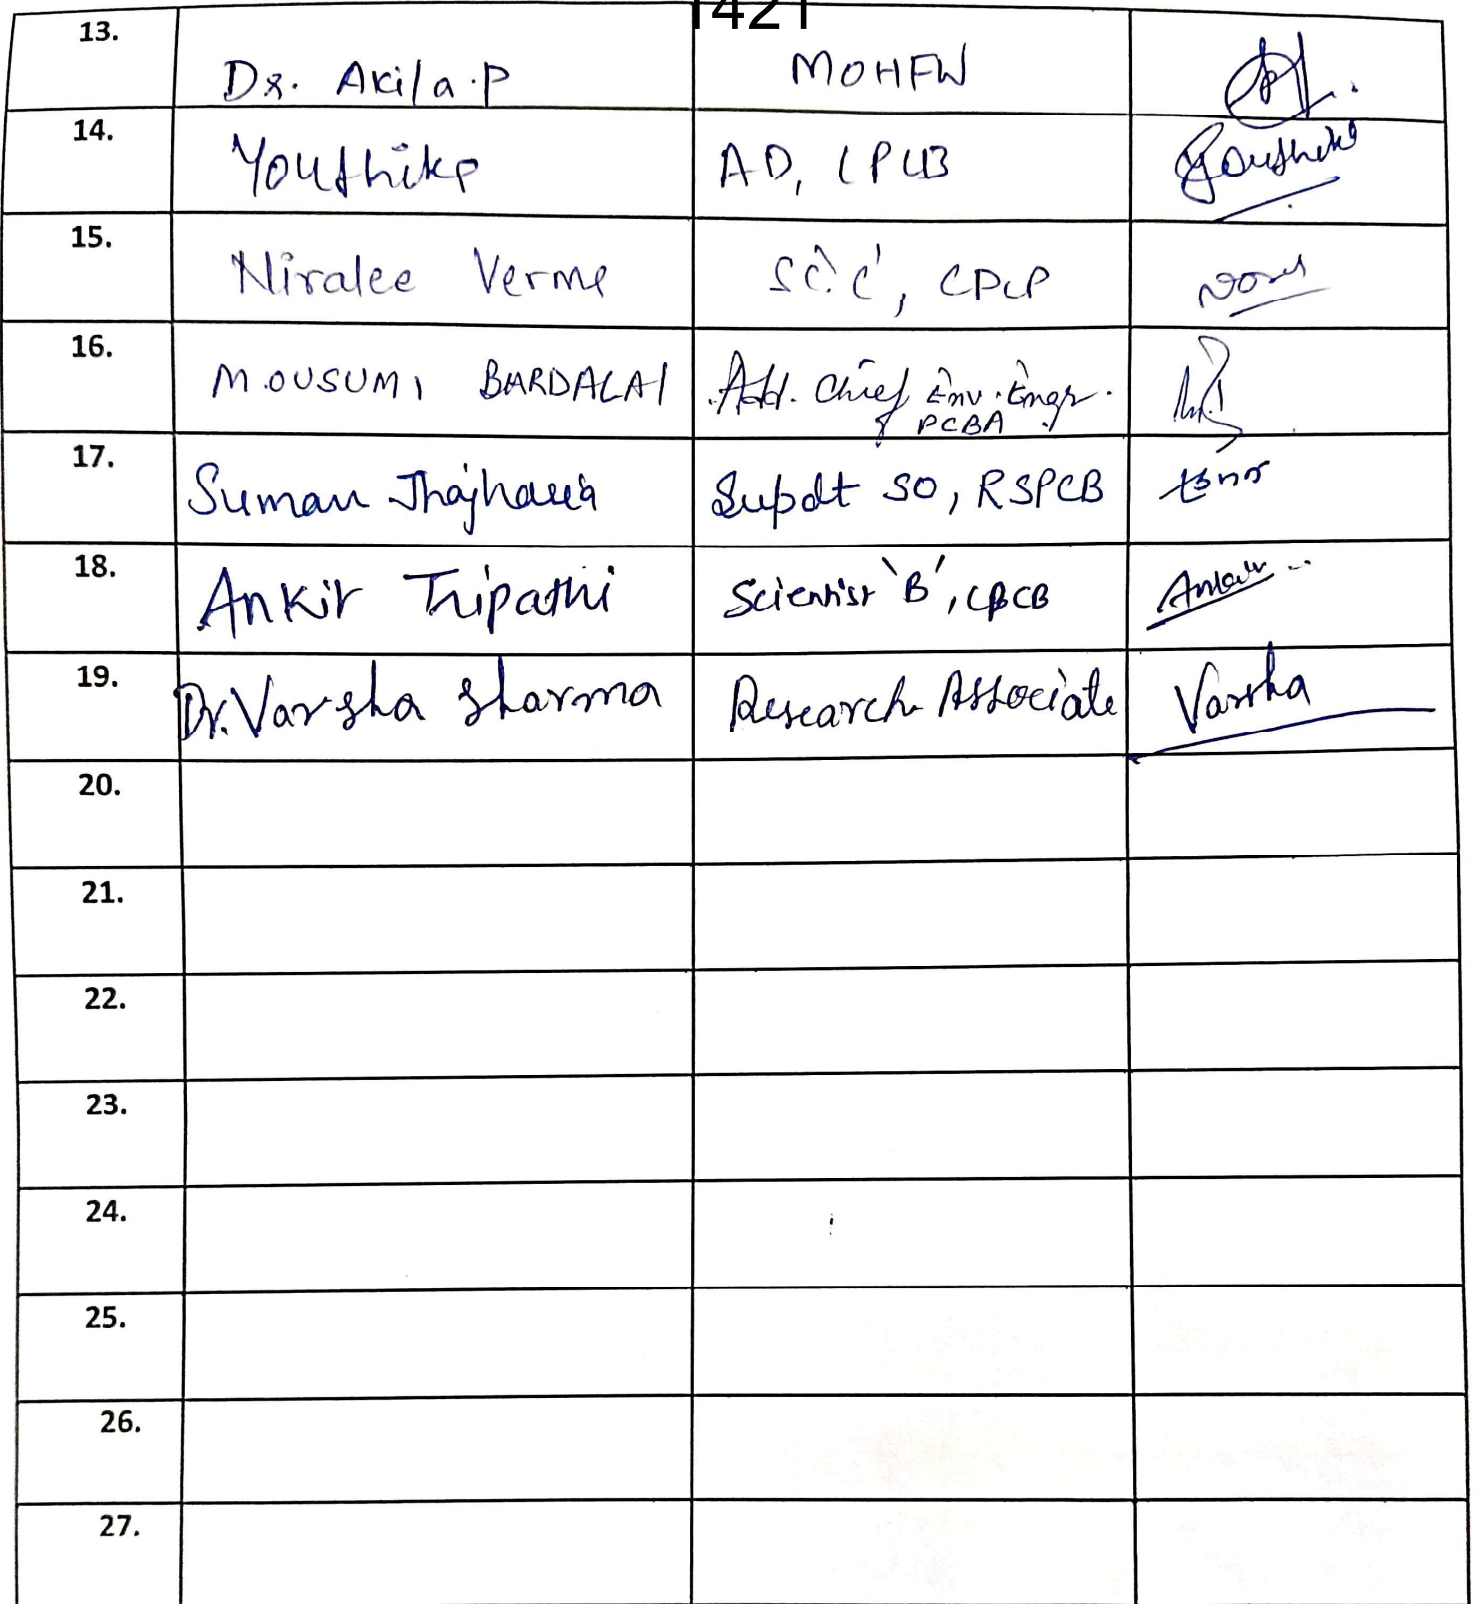 1421
13. Dr. Akila.P MOHFW
14. Youthika AD, CPCB Youthika
15. Niralee Verma Sc. 'C', CPCB
16. MOUSUMI BARDALAI Add. Chief Env. Engr.
PCBA
17. Suman Jhajharia Supdt SO, RSPCB
18. Ankit Tripathi Scientist 'B', CPCB
19. Dr. Varsha Sharma Research Associate Varsha
20.
21.
22.
23.
24.
25.
26.
27.